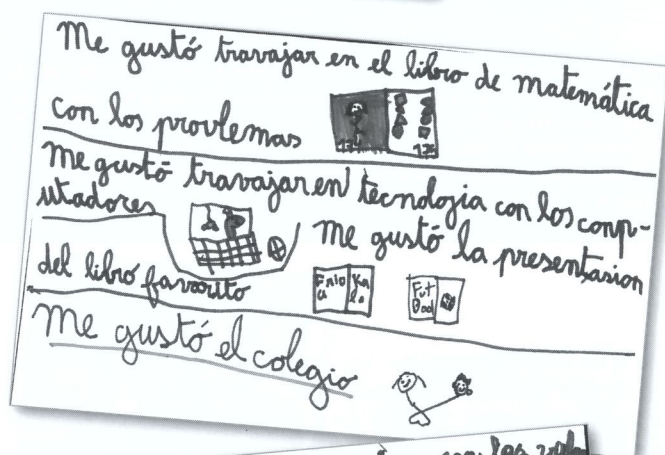 Me gustó travajar en el libro de matemática
con los provlemas
174 175
me gustó travajar en tecnologia con los comp-
utadores
me gustó la presentasion
del libro favorito
Frio
Ka
Fut
Bool
Me gustó el colegio
con los